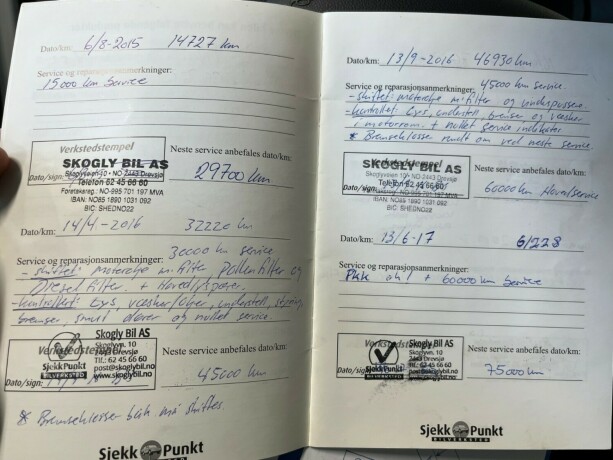 Dato/km: 6/8-2015 14727 km
Service og reparasjonsanmerkninger:
15000 km Service
Verkstedstempel
SKOGLY BIL AS
Skoglyveien 10 • NO-2443 Drevsjø
Telefon 62 45 66 60
Foretaksreg.: NO-995 701 197 MVA
IBAN: NO85 1890 1031 092
BIC: SHEDNO22
Dato/sign:
Neste service anbefales dato/km:
29700 km
Dato/km: 14/4-2016 32220 km
Service og reparasjonsanmerkninger: 30000 km service
- skiftet: motorolje m/filter, Pollenfilter og
Dieselfilter. +
- kontrollert: Lys, væsker/oljer, understell, styring
bremser, smurt dører og nullet service.
Verkstedstempel
Sjekk Punkt
BILVERKSTED
Skogly Bil AS
Skoglyvn. 10
Drevsjø
Tlf.: 62 45 66 60
post@skoglybil.no
www.skoglybil.no
Dato/sign:
Neste service anbefales dato/km:
45000 km
* Bremseklosser bak må skiftes.
Sjekk Punkt
BILVERKSTED
Dato/km: 13/9-2016 46930 km
Service og reparasjonsanmerkninger: 45000 km service.
- skiftet: motorolje m/filter og
- kontrollert lys, understell, bremser og væsker
i motorrom. + nullet service indikator
* Bremseklosser rundt om ved neste service.
Verkstedstempel
SKOGLY BIL AS
Skoglyveien 10 • NO-2443 Drevsjø
Telefon 62 45 66 60
Foretaksreg.: NO-995 701 197 MVA
IBAN: NO85 1890 1031 092
BIC: SHEDNO22
Dato/sign:
Neste service anbefales dato/km:
60000 km Hovedservice
Dato/km: 13/6-17 61228
Service og reparasjonsanmerkninger:
PKK ok! + 60000 km Service
Verkstedstempel
Sjekk Punkt
BILVERKSTED
Skogly Bil AS
Skoglyvn. 10
Drevsjø
Tlf.: 62 45 66 60
post@skoglybil.no
www.skoglybil.no
Dato/sign:
Neste service anbefales dato/km:
75000 km
Sjekk Punkt
BILVERKSTED